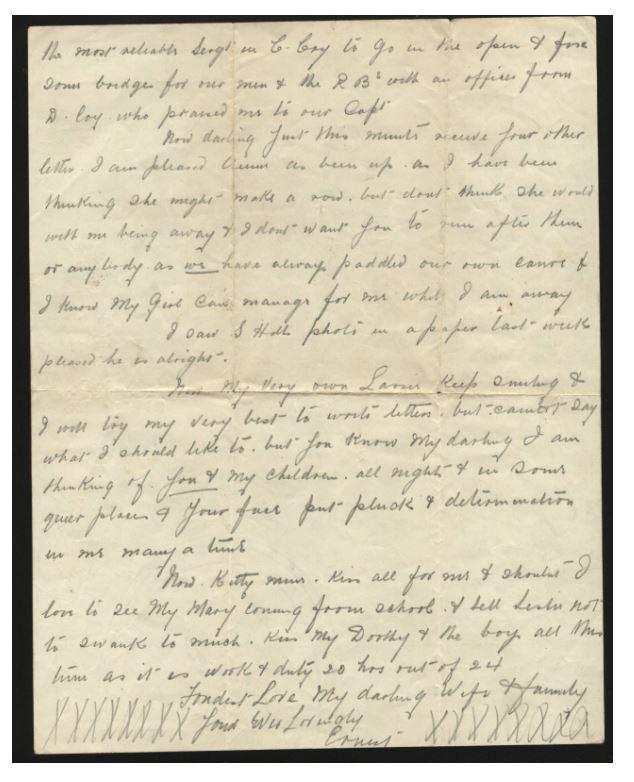 the most reliable Sergt in C. Coy to go in the open & fire
some bridges for our men & the R Bs with an officer from
D. Coy. who praised me to our Capt
Now darling Just this minute receive your other
letter. I am pleased as been up. as I have been
thinking she might make a row. but dont think she would
with me being away & I dont want you to run after them
or anybody. as we have always paddled our own canoe &
I know My Girl can manage for me whilst I am away
I saw S photo in a paper last week
pleased he is alright.
Now My very own Keep smiling &
I will try my very best to write letters. but cannot say
what I should like to. but you know My darling I am
thinking of you & My children. all night & in some
queer places & your face put pluck & determination
in me many a time
Now Kitty mine. Kiss all for me & shouldnt I
love to see My Mary coming from school. & tell Leslie not
to swank to much. Kiss My Dorothy & the boys all this
time as it is work & duty 20 hrs out of 24
Fondest Love My darling Wife & family
XXXXXXXX Your Ever Lovingly XXXXXXXX
Ernest